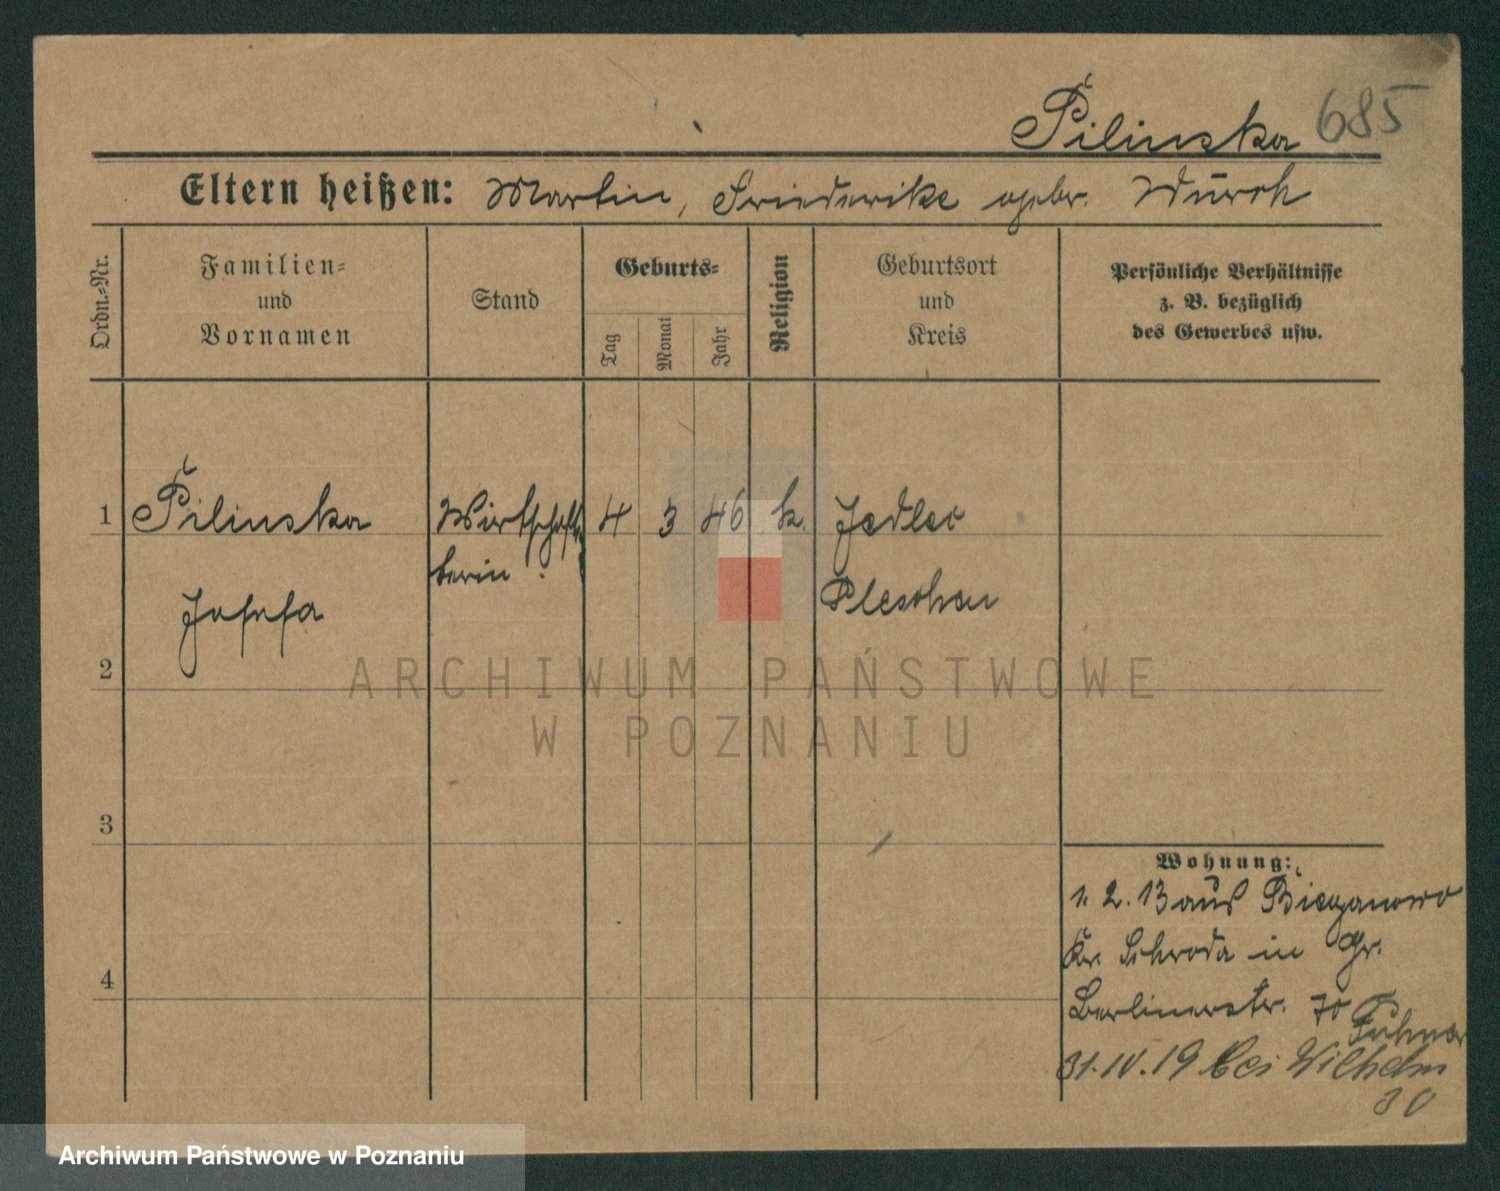 Pilinska 685
Eltern heißen: Martin, Friederike gebr. Würch
Ordn.=Nr.
Familien=
und
Vornamen
Stand
Geburts=
Tag
Monat
Jahr
Religion
Geburtsort
und
Kreis
Persönliche Verhältnisse
z. B. bezüglich
des Gewerbes usw.
1 Pilinska Wirtschaf 4 3 46 k. Jedlec
terin Pleschen
Josefa
2
ARCHIWUM PAŃSTWOWE
W POZNANIU
3
Wohnung:
1. 2. 13 aus Bieganowo
Kr. Schroda in Gr.
4
Berlinerstr. 70
31. IV. 19 bei Wilhelm
30
Archiwum Państwowe w Poznaniu